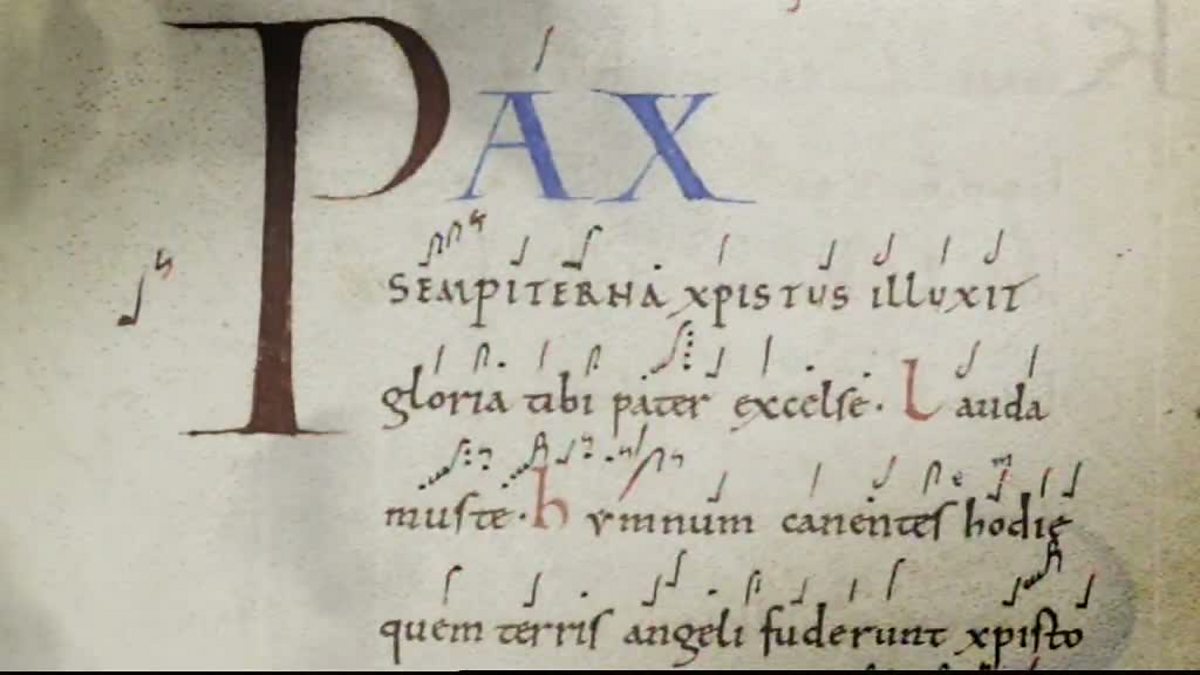 PAX
SEMPITERNA XPISTUS ILLUXIT
gloria tibi pater excelse. Lauda
muste. hymnum canentes hodię
quem terris angeli fuderunt xpisto